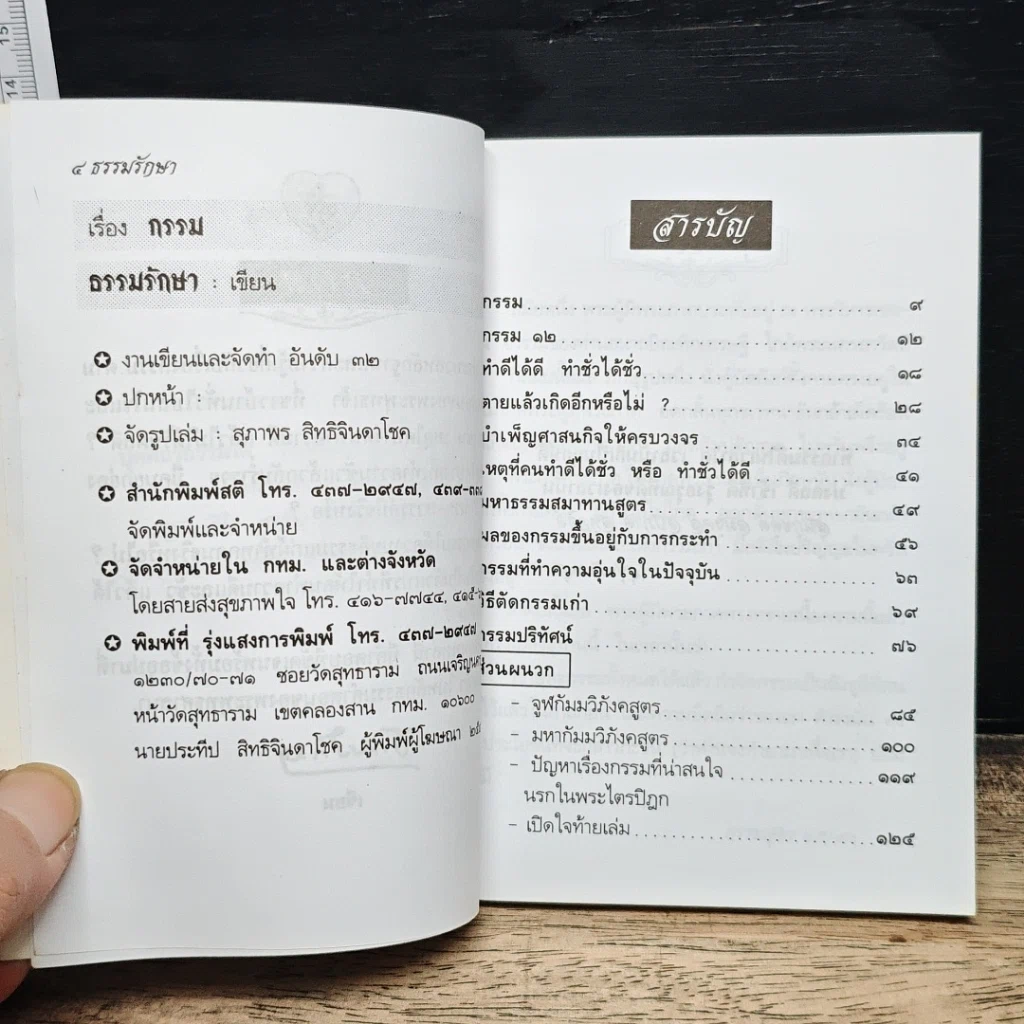 15
14
๔ ธรรมรักษา
เรื่อง กรรม
ธรรมรักษา : เขียน
✪ งานเขียนและจัดทำ อันดับ ๓๒
✪ ปกหน้า :
✪ จัดรูปเล่ม : สุภาพร สิทธิจินดาโชค
✪ สำนักพิมพ์สติ โทร. ๔๓๗-๒๙๔๗,
จัดพิมพ์และจำหน่าย
✪ จัดจำหน่ายใน กทม. และต่างจังหวัด
โดยสายส่งสุขภาพใจ โทร. ๔๑๖-๗๗๔๔,
✪ พิมพ์ที่ รุ่งแสงการพิมพ์ โทร. ๔๓๗-๒๙๔๗
๑๒๓๐/๗๐-๗๑ ซอยวัดสุทธาราม
หน้าวัดสุทธาราม เขตคลองสาน กทม. ๑๐๖๐๐
นายประทีป สิทธิจินดาโชค ผู้พิมพ์ผู้โฆษณา
สารบัญ
กรรม ๙
กรรม ๑๒ ๑๒
ทำดีได้ดี ทำชั่วได้ชั่ว ๑๘
ตายแล้วเกิดอีกหรือไม่ ? ๒๘
บำเพ็ญศาสนกิจให้ครบวงจร ๓๔
เหตุที่คนทำดีได้ชั่ว หรือ ทำชั่วได้ดี ๔๑
มหาธรรมสมาทานสูตร ๔๙
ผลของกรรมขึ้นอยู่กับการกระทำ ๕๖
กรรมที่ทำความอุ่นใจในปัจจุบัน ๖๓
วิธีตัดกรรมเก่า ๖๙
กรรมปริทัศน์ ๗๖
ส่วนผนวก
- จูฬกัมมวิภังคสูตร ๘๕
- มหากัมมวิภังคสูตร ๑๐๐
- ปัญหาเรื่องกรรมที่น่าสนใจ ๑๑๙
นรกในพระไตรปิฎก
- เปิดใจท้ายเล่ม ๑๒๕